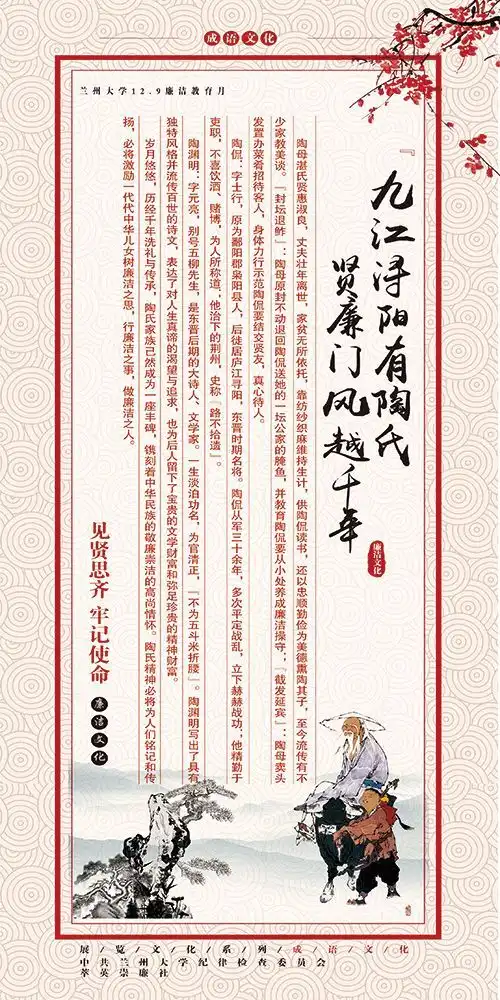 成语文化
兰州大学12.9廉洁教育月
『九江浔阳有陶氏
贤廉门风越千年
廉洁文化
陶母湛氏贤惠淑良，丈夫壮年离世，家贫无所依托，靠纺纱织麻维持生计，供陶侃读书，还以忠顺勤俭为美德熏陶其子，至今流传有不
少家教美谈。『封坛退鲊』：陶母原封不动退回陶侃送她的一坛公家的腌鱼，并教育陶侃要从小处养成廉洁操守；『截发延宾』：陶母卖头
发置办菜肴招待客人，身体力行示范陶侃要结交贤友，真心待人。
陶侃：字士行，原为鄱阳郡枭阳县人，后徙居庐江寻阳，东晋时期名将。陶侃从军三十余年，多次平定战乱，立下赫赫战功；他精勤于
吏职，不喜饮酒、赌博，为人所称道，他治下的荆州，史称『路不拾遗』。
陶渊明：字元亮，别号五柳先生，是东晋后期的大诗人、文学家。一生淡泊功名，为官清正，『不为五斗米折腰』。陶渊明写出了具有
独特风格并流传百世的诗文，表达了对人生真谛的渴望与追求，也为后人留下了宝贵的文学财富和弥足珍贵的精神财富。
岁月悠悠，历经千年洗礼与传承，陶氏家族已然成为一座丰碑，镌刻着中华民族的敬廉崇洁的高尚情怀。陶氏精神必将为人们铭记和传
扬，必将激励一代代中华儿女树廉洁之思，行廉洁之事，做廉洁之人。
见贤思齐 牢记使命
廉洁文化
展/览/文/化/系/列/成/语/文/化
中共兰州大学纪律检查委员会
萃英崇廉社